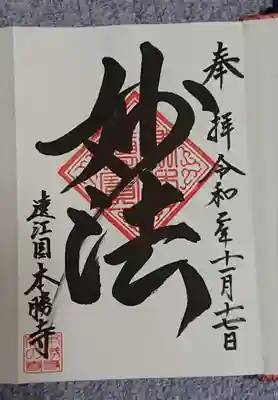 奉拝 令和二年十一月十七日
妙法
遠江国 本勝寺